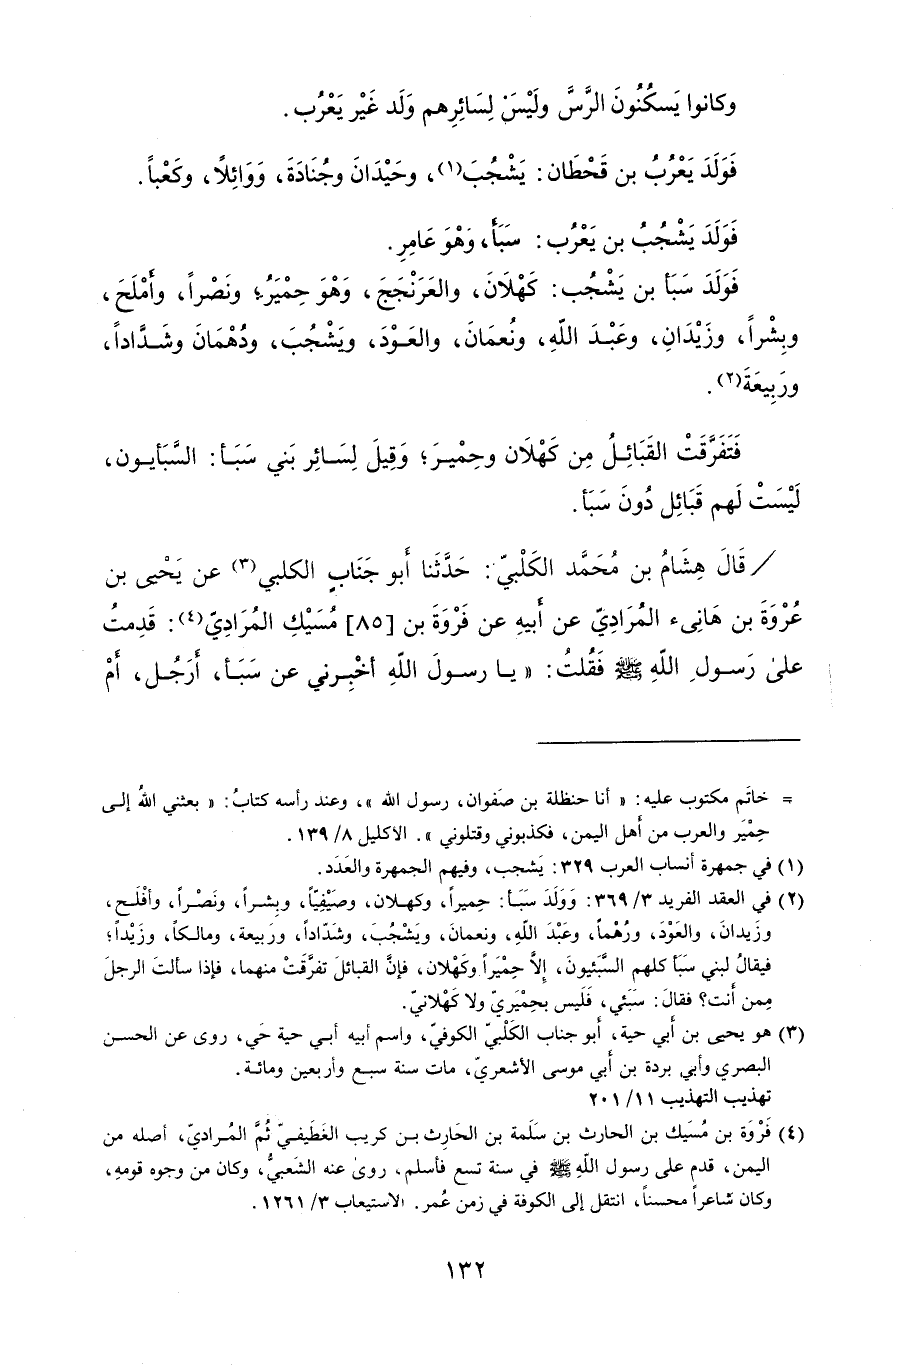 وكانوا يَسكُنُونَ الرَّسَّ ولَيْسَ لِسَائِرِهم وَلَد غَيْر يَعْرُب.
فَوَلَدَ يَعْرُبُ بن قَحْطَان: يَشْجُبَ(١)، وحَيْدَانَ وجُنَادَةَ، وَوَائِلًا، وكَعْباً.
فَوَلَدَ يَشْجُبُ بن يَعْرُب: سَبَأَ، وَهْوَ عَامِر.
فَوَلَدَ سَبَأ بن يَشْجُب: كَهْلَانَ، والعَرَنْجَجَ، وَهْوَ حِمْيَرُ؛ ونَصْراً، وأَمْلَحَ،
وبِشْراً، وزَيْدَانِ، وعَبْدَ اللّهِ، ونُعمَانَ، والعَوْدَ، ويَشْجُبَ، ودُهْمَانَ وشَدَّاداً،
ورَبِيعَةَ(٢).
فَتَفَرَّقَتْ القَبَائِلُ مِن كَهْلَان وحِمْيرَ؛ وَقِيلَ لِسَائِر بَني سَبَأ: السَّبَأيون،
لَيْسَتْ لَهم قَبَائِل دُونَ سَبَأ.
/ قَالَ هِشَامُ بن مُحَمَّد الكَلْبيّ: حَدَّثنا أَبو جَنَابٍ الكلبي(٣) عن يَحْيى بن
عُرْوَةَ بن هَانِىء المُرَادِيّ عن أَبيهِ عن فَرْوَةَ بن [٨٥] مُسَيْكِ المُرَادِيّ(٤): قَدِمتُ
على رَسولِ اللّهِ ﷺ فَقُلتُ: « يا رسولَ اللّهِ أخْبِرني عن سَبَأ، أَرَجُل، أَمْ
= خاتَم مكتوب عليه: « أنا حنظلة بن صَفوان، رسول الله »، وعند رأسه كتابُ: « بعثني اللهُ إلى
حِمْيَر والعرب من أَهل اليمن، فكذبوني وقتلوني ». الاكليل ٨/ ١٣٩.
(١) في جمهرة أنساب العرب ٣٢٩: يَشجب، وفيهم الجمهرة والعَدَد.
(٢) في العقد الفريد ٣/ ٣٦٩: وَوَلَدَ سَبَأ: حِميراً، وكهلان، وصَيْفِيّاً، وبِشراً، ونَصْراً، وأَفْلَح،
وزَيدانَ، والعَوْدَ، ورُهْماً، وعَبْدَ اللّهِ، ونعمانَ، ويَشْجُبَ، وشدّاداً، ورَبيعة، ومالكاً، وزَيْداً؛
فيقالُ لبني سَبَأ كلهم السَّبَئيونَ، إلاَّ حِمْيَراً وكَهْلان، فإنَّ القبائلَ تفرَّقَتْ منهما، فإذا سألتَ الرجلَ
مِمن أنت؟ فقالَ: سَبَئي، فَلَيس بحِمْيَريّ ولا كَهْلانيّ.
(٣) هو يحيى بن أبي حية، أبو جناب الكَلْبيّ الكوفيّ، واسم أبيه أبي حية حَي، روى عن الحسن
البصري وأبي بردة بن أبي موسى الأشعريّ، مات سنة سبع وأربعين ومائة.
تهذيب التهذيب ١١/ ٢٠١
(٤) فَرْوَة بن مُسَيك بن الحارث بن سَلَمة بن الحَارِث بن كريب الغَطَيفيّ ثُمَّ المُراديّ، أصله من
اليمن، قدم على رسول اللّهِ ﷺ في سنة تسع فأسلم، روى عنه الشَعبيُّ، وكان من وجوه قومهِ،
وكان شاعراً محسناً، انتقل إلى الكوفة في زمن عُمر. الاستيعاب ٣/ ١٢٦١.
١٣٢